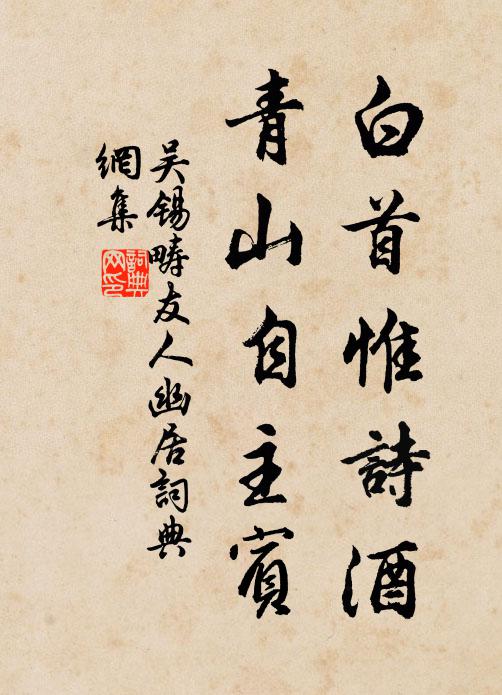 白首惟詩酒
青山自主賓
吴錫疇友人幽居詞典
網集
詞典
网印